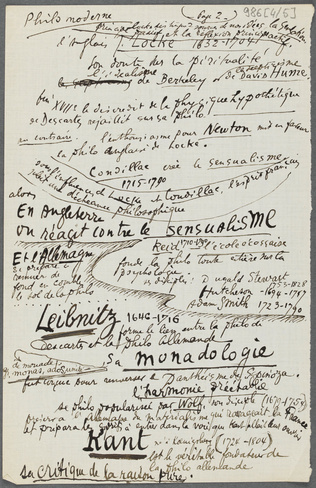 Philo moderne (Page 2) 986[4/5]
l'anglais J. LOCKE 1632-1704
son doute de la spiritualité
l'idéalisme scepticisme
de Berkeley de David HUME.
au XVIIIe le discrédit de la physique hypothétique
de Descartes rejaillit sur sa philo.
au contraire. l'enthousiasme pour Newton met en faveur
la philo anglaise de Locke.
CONDILLAC crée le sensualisme
1715-1790
Locke et Condillac, l'esprit français
décheance philosophique
alors
En Angleterre
on réagit contre le sensualisme
Reid 1710-1796 l'école écossaise
Et l'Allemagne
fonde la philo toute entière sur la
psychologie
se prépare à
disciples: Dugald Stewart 1753-1828
fond en comble
Hutcheson 1694-1747
le sol de la philo
Adam Smith 1723-1790
Leibnitz 1646-1716
forme le lien entre la philo de
Descartes et la philo Allemande
Sa monadologie
fut conçue pour renverser le Panthéisme de Spinoza.
l'harmonie préétablie
sa philo popularisée par Wolf, son disciple (1679-1754)
préserva l'Allemagne du matérialisme qui ravageait la France
et prépara les esprits à entrer dans la voie que Kant allait leur ouvrir
Kant
né à Königsberg (1724-1804)
est le véritable fondateur de
la philo allemande
sa critique de la raison pure.